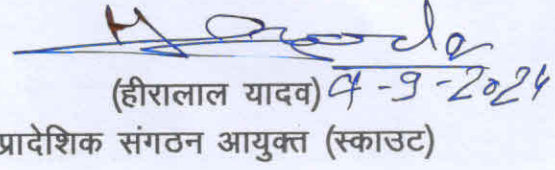 (हीरालाल यादव) 9-9-2024
प्रादेशिक संगठन आयुक्त (स्काउट)